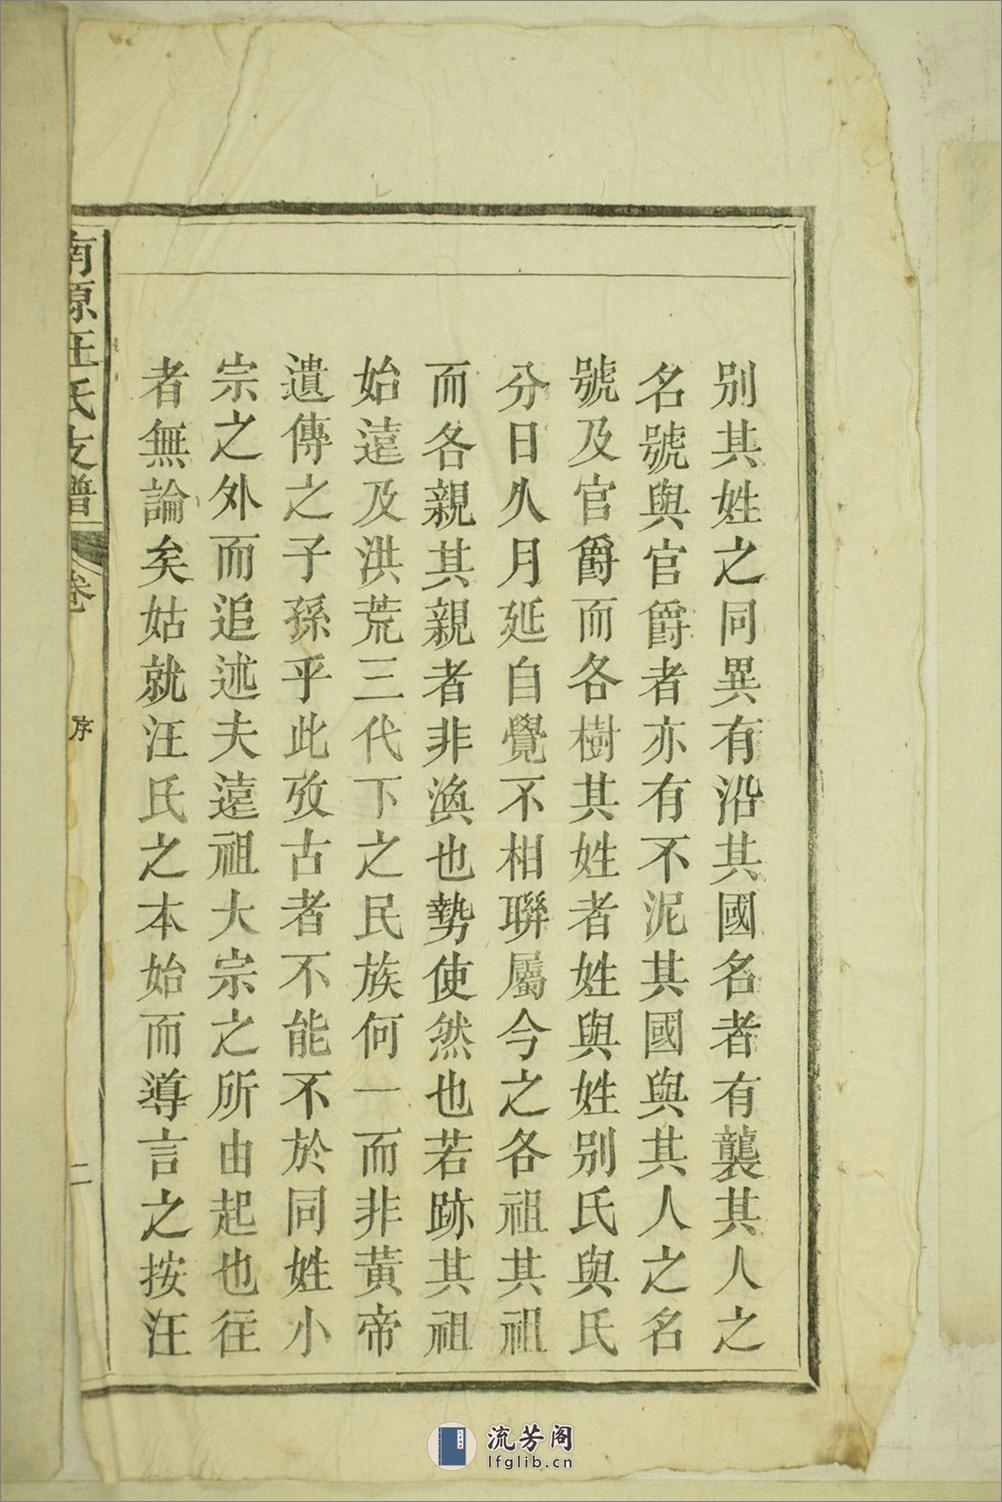 別其姓之同異有沿其國名者有襲其人之
名號與官爵者亦有不泥其國與其人之名
號及官爵而各樹其姓者姓與姓別氏與氏
分日久月延自覺不相聯屬今之各祖其祖
而各親其親者非渙也勢使然也若跡其祖
始遠及洪荒三代下之民族何一而非黃帝
遺傳之子孫乎此攷古者不能不於同姓小
宗之外而追述夫遠祖大宗之所由起也往
者無論矣姑就汪氏之本始而導言之按汪
南源汪氏支譜
卷
序
二
流芳阁
lfglib.cn